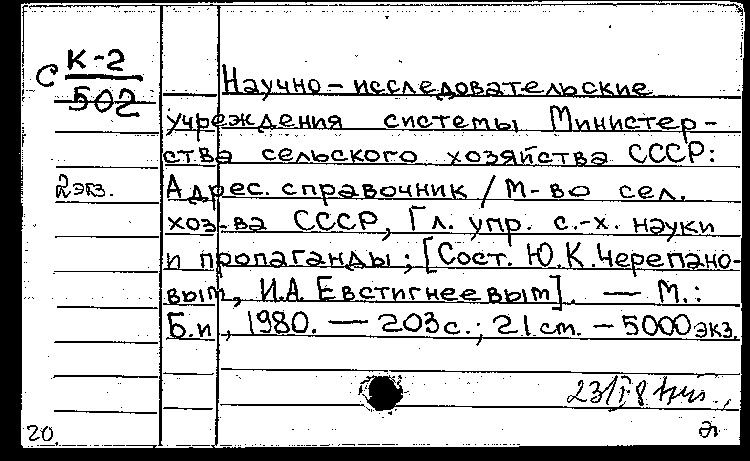 С К-2
502
Научно-исследовательские
учреждения системы Министер-
ства сельского хозяйства СССР:
2 экз. Адрес. справочник / М-во сел.
хоз-ва СССР, Гл. упр. с.-х. науки
и пропаганды; [Сост. Ю.К. Черепано-
вым, И.А. Евстигнеевым]. — М.:
Б.и, 1980. — 203 с.; 21 см. — 5000 экз.
20.